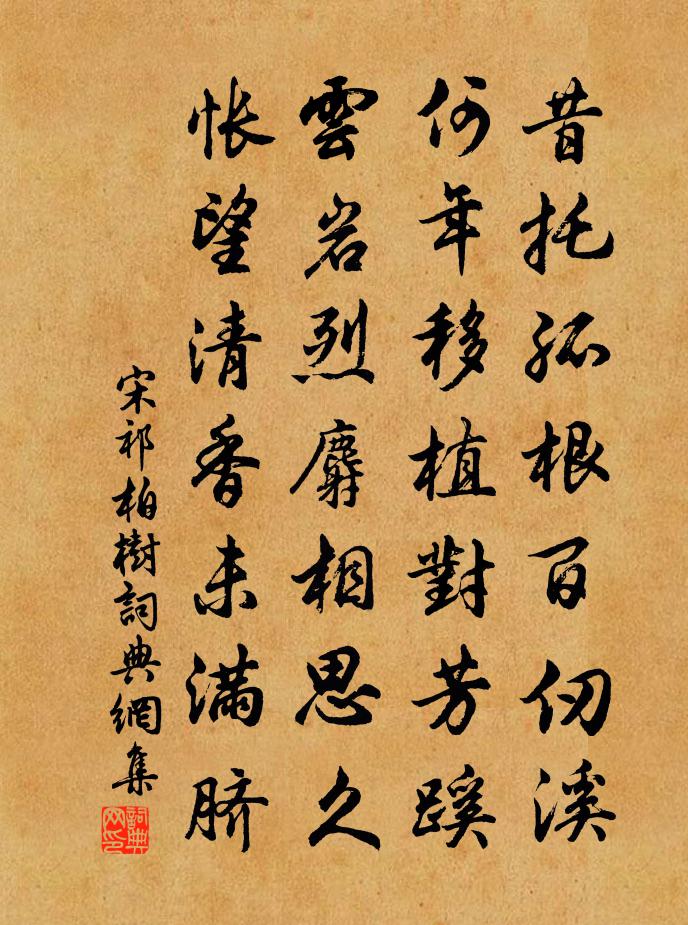 昔托孤根百仞溪
何年移植對芳蹊
雲岩烈麝相思久
悵望清香未满脐
宋祁柏樹詞典網集
詞典网印